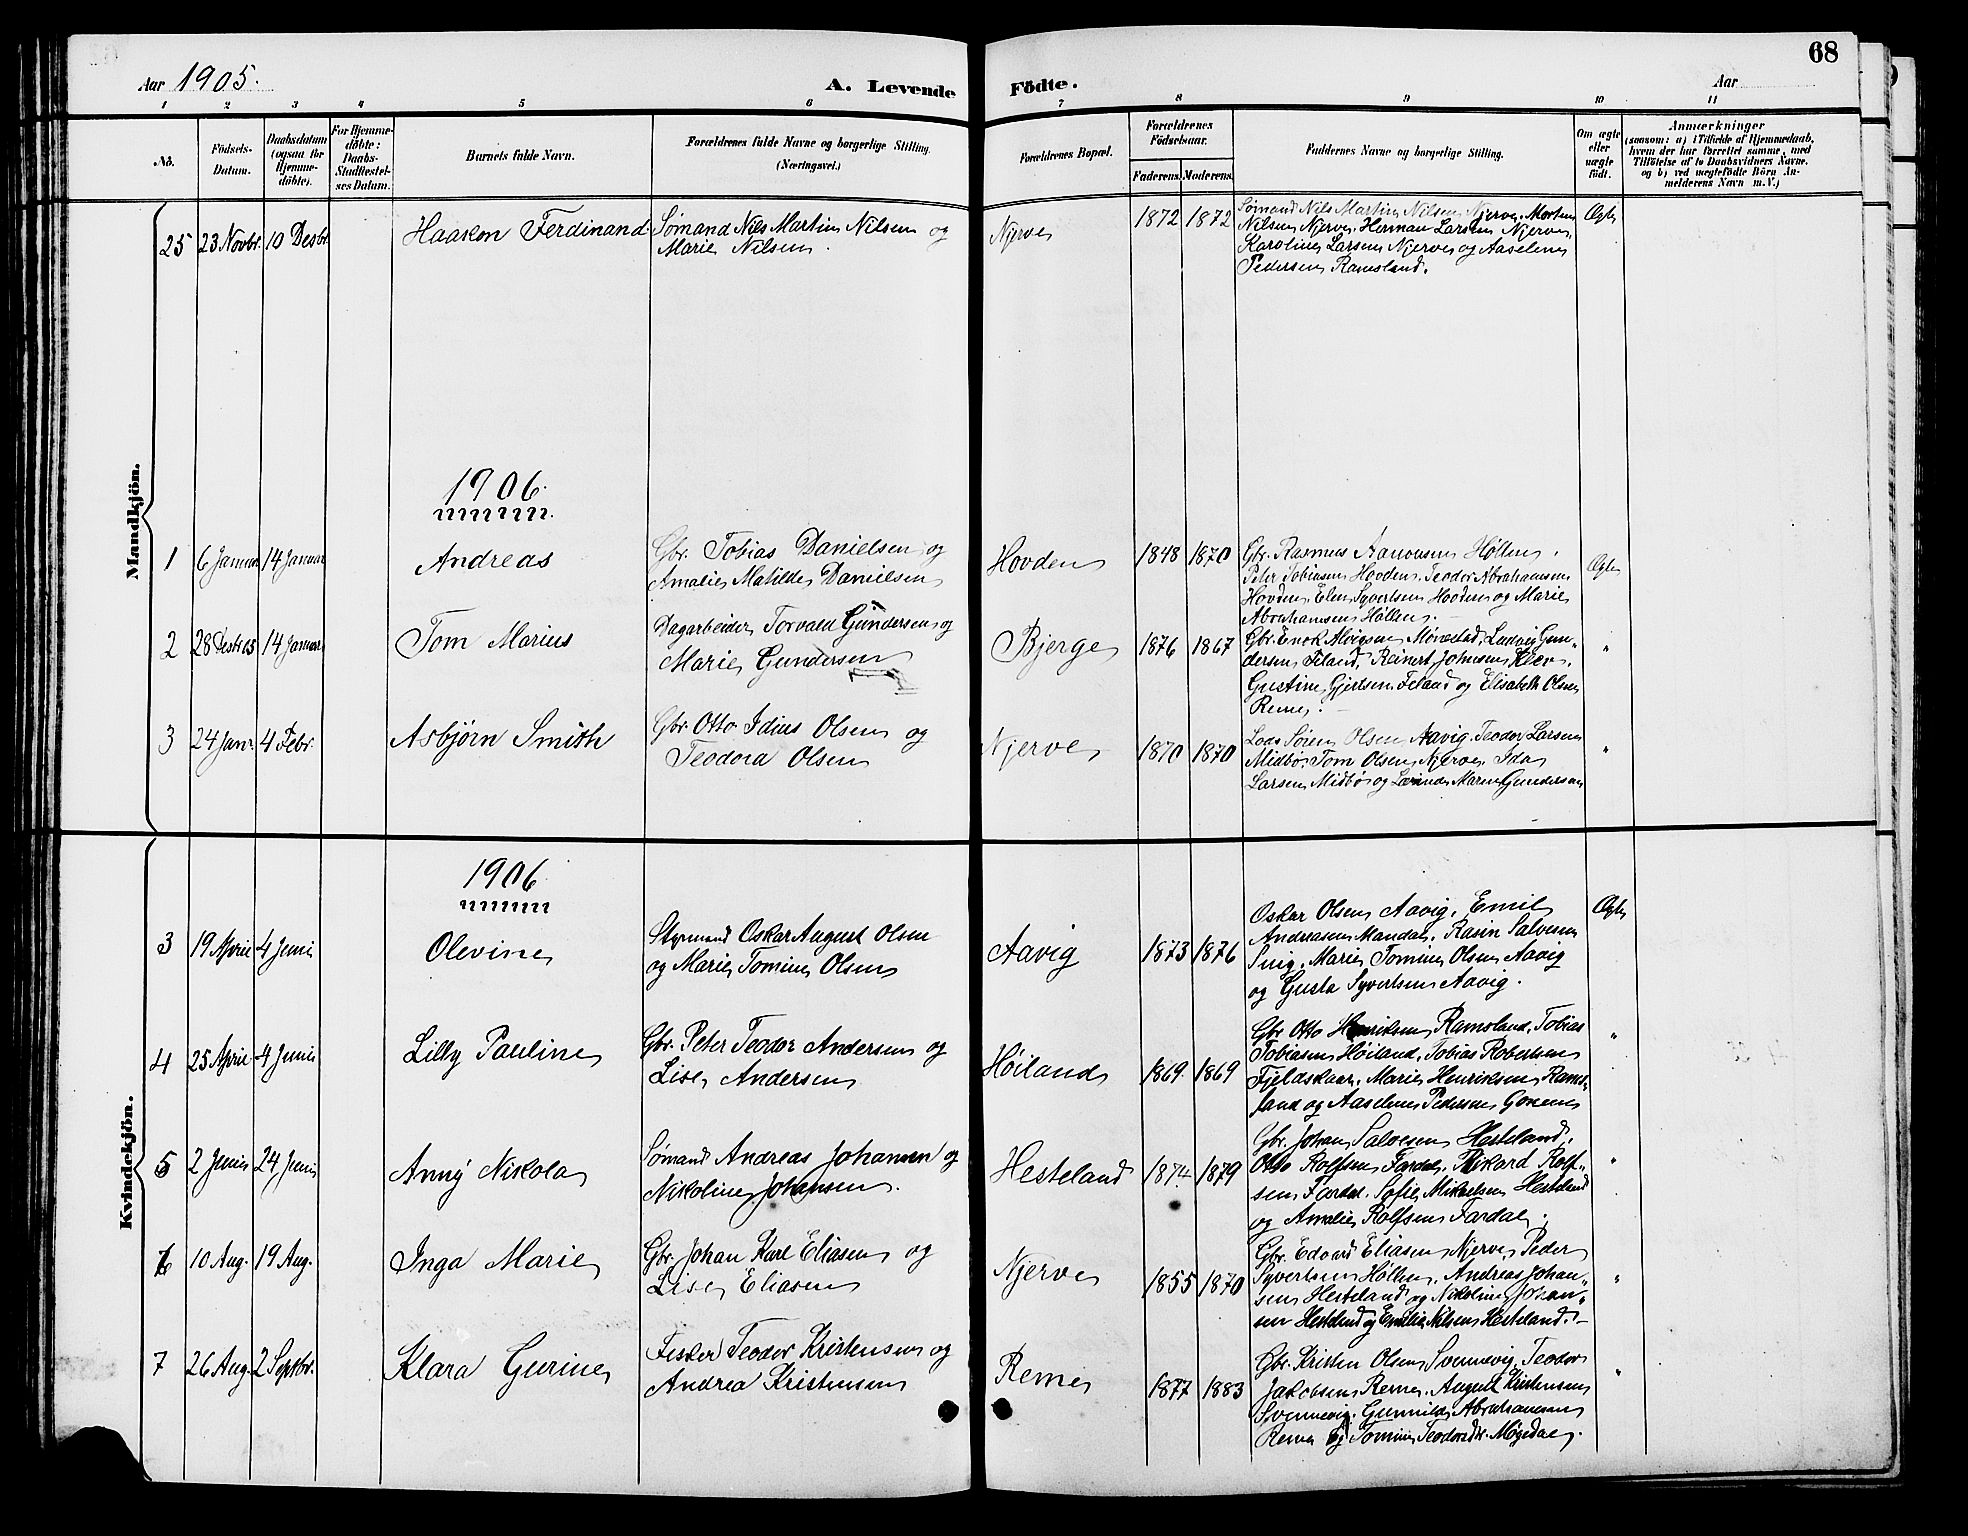 68
Aar 1905.
A. Levende Födte.
Aar
1 2 3 4 5 6 7 8 9 10 11
No.
Födsels-Datum.
Daabsdatum (ogsaa for Hjemme-döbte).
For Hjemme-döbte: Daabs-Stadfæstel-ses Datum.
Barnets fulde Navn.
Forældrenes fulde Navne og borgerlige Stilling. (Næringsvei.)
Forældrenes Bopæl.
Forældrenes Födselsaar.
Faderens. Moderens.
Faddernes Navne og borgerlige Stilling.
Om ægte eller uægte födt.
Anmærkninger
(saasom: a) i Tilfælde af Hjemmedaab,
hvem der har forrettet samme, med
Tilföielse af to Daabsvidners Navne.
og b) ved uægtefödte Börn An-
melderens Navn m. V.)
Mandkjön.
25 23 Novbr. 10 Desbr. Haakon Ferdinand
Sømand Nils Martin Nilsen og
Marie Nilsen.
Njerve 1872 1872
Sømand Nils Martin Nilsen Njerve, Morten
Nilsen Njerve, Herman Larsen Njerve,
Karoline Larsen Njerve og Aaselene
Pedersen Ramsland.
Ægte
1906.
1 6 Januar 14 Januar Andreas
Gbr. Tobias Danielsen og
Amalie Matilde Danielsen
Hovden 1848 1870
Gbr. Rasmus Aanonsen Høllen.
Peter Tobiasen Hovden, Teodor Abrahamsen
Hovden, Elen Syvertsen Hovden og Marie
Abrahamsen Høllen.
Ægte
2 28 Desbr 05 14 Januar Tom Marius
Dagarbeider Torvald Gundersen og
Marie Gundersen
Bjerge 1876 1867
Gbr. Enok Alvigsen Mønestad, Ludvig Gun„
dersen Feland, Reinert Johnsen Klev,
Gustine Gjertsen Feland og Elisabeth Olsen
Reme.
"
3 24 Janr. 4 Febr. Asbjørn Smith
Gbr. Otto Idius Olsen og
Teodora Olsen
Njerve 1870 1870
Lods Søren Olsen Aavig, Teodor Larsen
Midbø, Tom Olsen Njerve, Ida
Larsen Midbø og Marie Gundersen
"
Kvindekjön.
1906
3 19 April 4 Juni Olevine
Styrmand Oskar August Olsen
og Marie Tomine Olsen
Aavig 1873 1876
Oskar Olsen Aavig, Emil
Andreasen Mandal, Rasin Salvesen
Snig, Marie Tomine Olsen Aavig
og Gusta Syvertsen Aavig.
Ægte
4 25 April 4 Juni Lilly Pauline
Gbr. Peter Teodor Andersen og
Lise Andersen
Høiland 1869. 1869
Gbr Otto Henriksen Ramsland, Tobias
Tobiasen Høiland, Tobias Robertsen
Fjeldskaar, Marie Henriksen Rams„
land og Aaselene Pedersen
"
5 2 Juni 24 Juni Anny Nikola
Sømand Andreas Johansen og
Nikoline Johansen.
Hesteland 1874. 1879
Gbr. Johan Salvesen Hesteland,
Otto Rolfsen Fardal, Rikard Rolf„
sen Fardal, Sofie Mikaelsen Hesteland
og Amalie Rolfsen Fardal.
"
6 10 Aug. 19 Aug. Inga Marie
Gbr. Johan Karl Eliasen og
Lise Eliasen
Njerve 1855 1870
Gbr. Edvard Eliasen Njerve, Peder
Syvertsen Høllen, Andreas Johan„
sen Hesteland og Nikoline Johan„
sen Hesteland og Emilie Nilsen Hesteland.
"
7 26 Aug. 2 Septbr. Klara Gurine
Fisker Teodor Kristensen og
Andrea Kristensen
Reme 1877 1883
Gbr. Kristen Olsen Svennevig, Teodor
Jakobsen Reme, August Kristensen
Svennevig, Gunnilde Abrahamsen
Reme og Tomine Teodorsdtr. Møgedal.
"